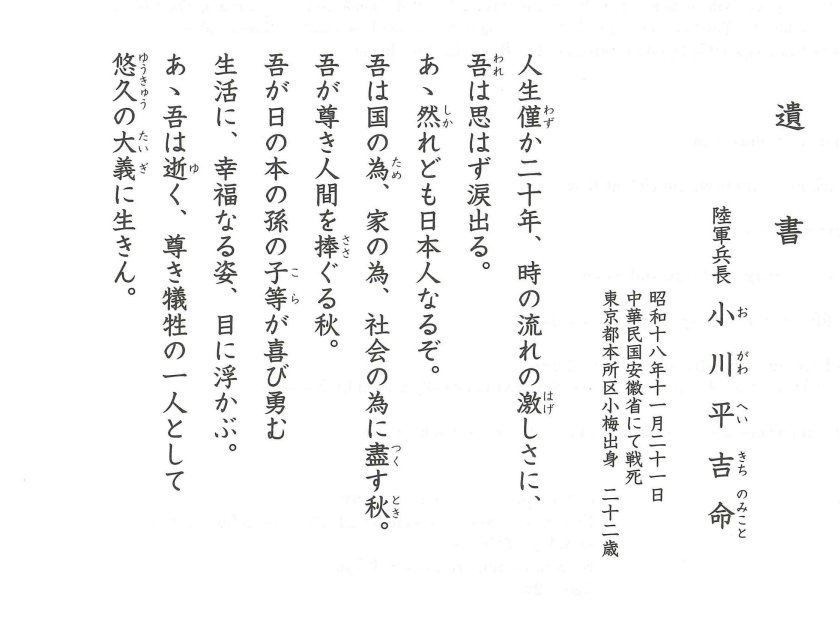 遺書
陸軍兵長 小川平吉命
おがわへいきちのみこと
昭和十八年十一月二十一日
中華民国安徽省にて戦死
東京都本所区小梅出身 二十二歳
人生僅か二十年、時の流れの激しさに、
わず はげ
吾は思はず涙出る。
われ
あゝ然れども日本人なるぞ。
しか
吾は国の為、家の為、社会の為に盡す秋。
ため つく とき
吾が尊き人間を捧ぐる秋。
ささ
吾が日の本の孫の子等が喜び勇む
こら
生活に、幸福なる姿、目に浮かぶ。
あゝ吾は逝く、尊き犠牲の一人として
ゆ
悠久の大義に生きん。
ゆうきゅう たいぎ